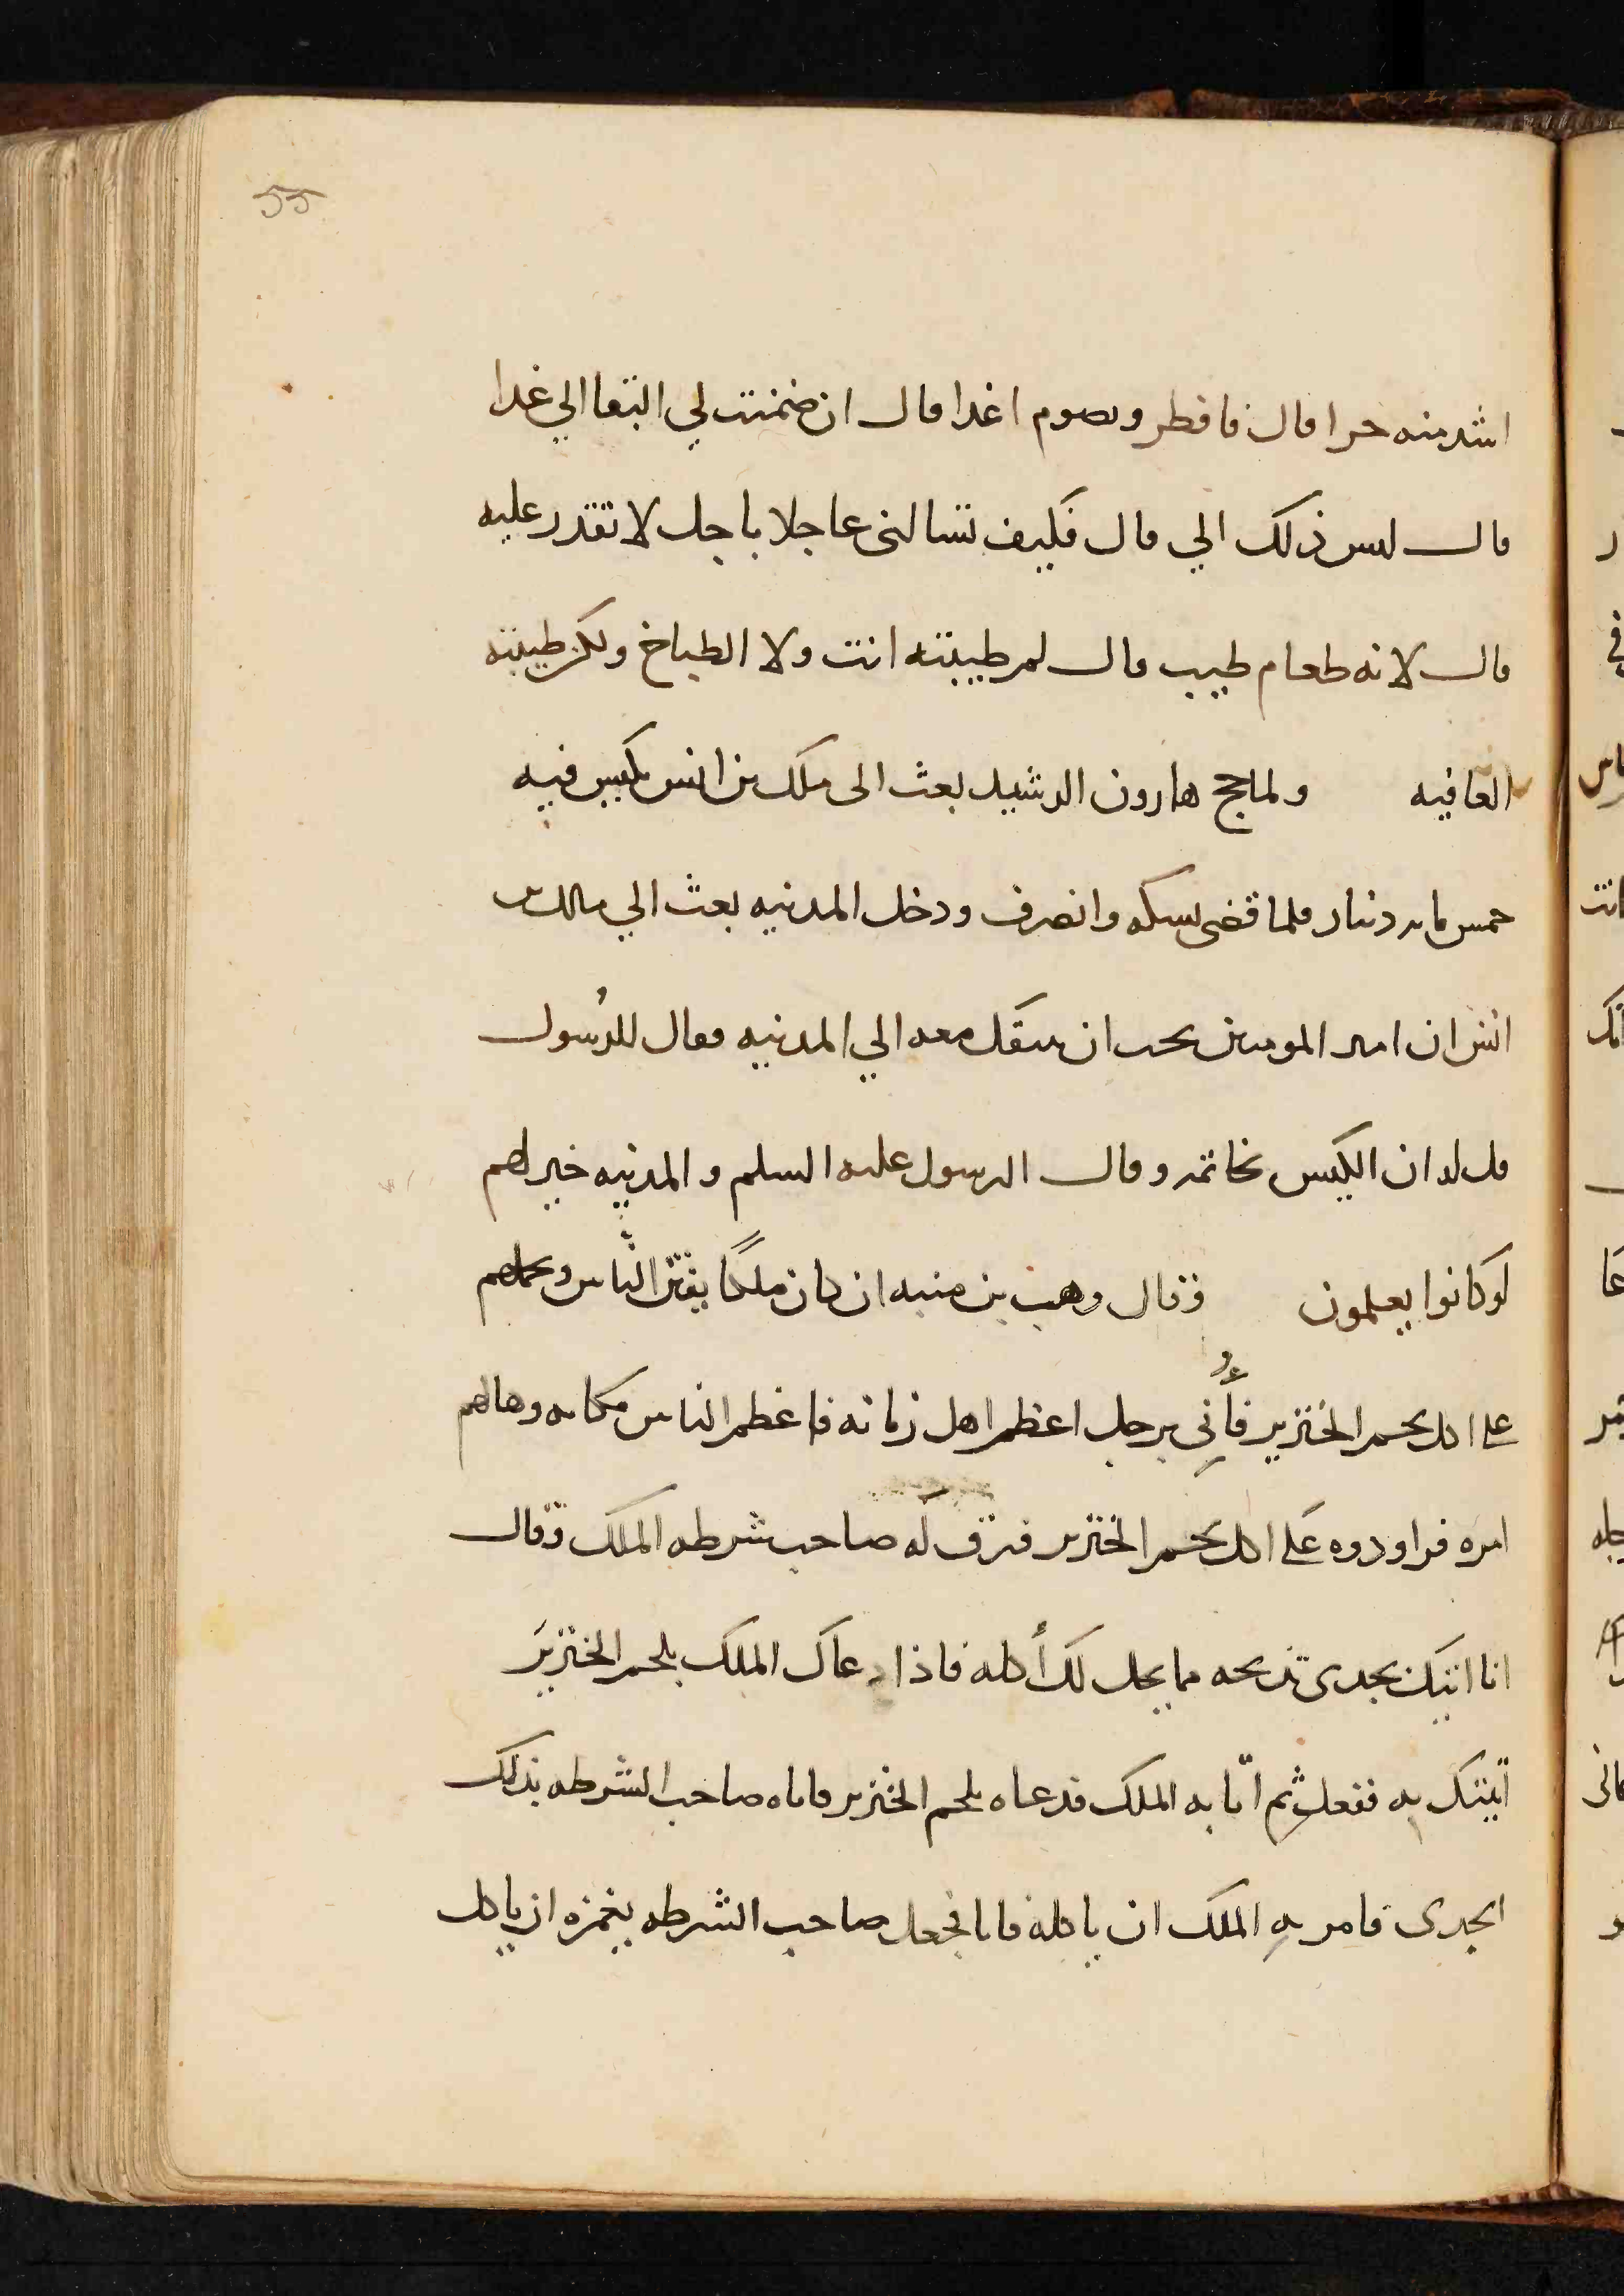 55
اشد منه حرا قال فافطر وتصوم غدا قال ان ضمنت لي البقا الي غدا
قال ليس ذلك الي قال فكيف تسالني عاجلا باجل لا تقدر عليه
قال لانه طعام طيب قال لم طيبته انت ولا الطباخ ولكن طيبته
العافيه ولما حج هارون الرشيد بعث الى ملك بن انس بكيس فيه
خمس مايه دينار فلما قضى نسكه وانصرف ودخل المدينه بعث الي مالك بن
انس ان امير المومنين يحب ان تنتقل معه الي المدينه فقال للرسول
قل له ان الكيس بخاتمه وقال الرسول عليه السلم والمدينه خير لهم
لو كانوا يعلمون وقال وهب بن منبه ان كان ملكا يفتن الناس ويحملهم
على اكل لحم الخنزير فأتي برجل اعظم اهل زمانه فاعظم الناس مكانه وهالهم
امره فراودوه على اكل لحم الخنزير فرق له صاحب شرطه الملك وقال
انا اتيك بجدى تذبحه مما يحل لك أكله فاذا دعاك الملك بلحم الخنزير
أتيتك به ففعل ثم اتا به الملك فدعاه بلحم الخنزير فاتاه صاحب الشرطه بذلك
الجدى فامر به الملك ان ياكله فابا فجعل صاحب الشرطه يغمزه ان ياكل